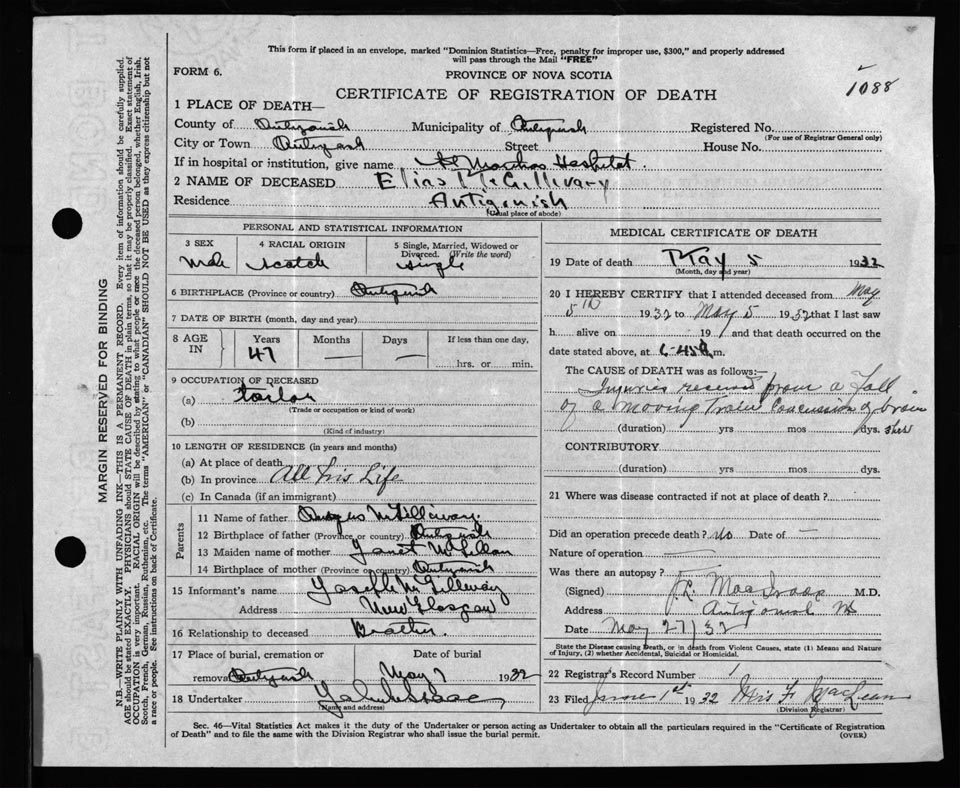 This form if placed in an envelope, marked "Dominion Statistics—Free, penalty for improper use, $300," and properly addressed
will pass through the Mail "FREE"
FORM 6.
PROVINCE OF NOVA SCOTIA
1088
CERTIFICATE OF REGISTRATION OF DEATH
1 PLACE OF DEATH—
County of Antigonish Municipality of Antigonish Registered No.
(For use of Registrar General only)
City or Town Antigonish Street House No.
If in hospital or institution, give name St Marthas Hospital.
2 NAME OF DECEASED Elias McGillivary
Residence Antigonish
(Usual place of abode)
PERSONAL AND STATISTICAL INFORMATION
3 SEX 4 RACIAL ORIGIN 5 Single, Married, Widowed or
Divorced. (Write the word)
Male Scotch single
6 BIRTHPLACE (Province or country) Antigonish
7 DATE OF BIRTH (month, day and year)
8 AGE IN Years Months Days If less than one day,
47 — — hrs. or min.
9 OCCUPATION OF DECEASED
(a) tailor
(Trade or occupation or kind of work)
(b)
(Kind of industry)
10 LENGTH OF RESIDENCE (in years and months)
(a) At place of death
(b) In province All his Life
(c) In Canada (if an immigrant)
Parents
11 Name of father
12 Birthplace of father (Province or country) Antigonish
13 Maiden name of mother Janet McLellan
14 Birthplace of mother (Province or country) Antigonish
15 Informant's name Joseph McGillvary
Address New Glasgow
16 Relationship to deceased Brother.
17 Place of burial, cremation or Date of burial
removal Antigonish May 7 1932
18 Undertaker
(Name and address)
MEDICAL CERTIFICATE OF DEATH
19 Date of death May 5 1932
(Month, day and year)
20 I HEREBY CERTIFY that I attended deceased from May
5th 1932 to May 5 1932 that I last saw
h alive on 19 and that death occurred on
date stated above, at 6-45 m.
The CAUSE of DEATH was as follows:—
Injuries received from a Fall
of a moving Train Concussion of brain
(duration) yrs mos dys.
CONTRIBUTORY
(duration) yrs mos dys.
21 Where was disease contracted if not at place of death?
Did an operation precede death? No Date of —
Nature of operation —
Was there an autopsy? —
(Signed) J.R. MacIsaac M.D.
Address Antigonish NS
Date May 27/32
State the Disease causing Death, or in death from Violent Causes, state (1) Means and Nature
of Injury, (2) whether Accidental, Suicidal or Homicidal.
22 Registrar's Record Number 1
23 Filed June 1st 1932
(Division Registrar)
Sec. 46—Vital Statistics Act makes it the duty of the Undertaker or person acting as Undertaker to obtain all the particulars required in the "Certificate of Registration
of Death" and to file the same with the Division Registrar who shall issue the burial permit.
(OVER)
MARGIN RESERVED FOR BINDING
N.B.—WRITE PLAINLY WITH UNFADING INK—THIS IS A PERMANENT RECORD. Every item of information should be carefully supplied.
AGE should be stated EXACTLY. PHYSICIANS should STATE CAUSE OF DEATH in plain terms, so that it may be properly classified. Exact statement of
OCCUPATION is very important. RACIAL ORIGIN will be described by stating to what people or race the deceased person belonged, whether English, Irish,
Scotch, French, German, Russian, Ruthenian, etc. The terms "AMERICAN" or "CANADIAN" SHOULD NOT BE USED as they express citizenship but not
a race or people. See instructions on back of Certificate.